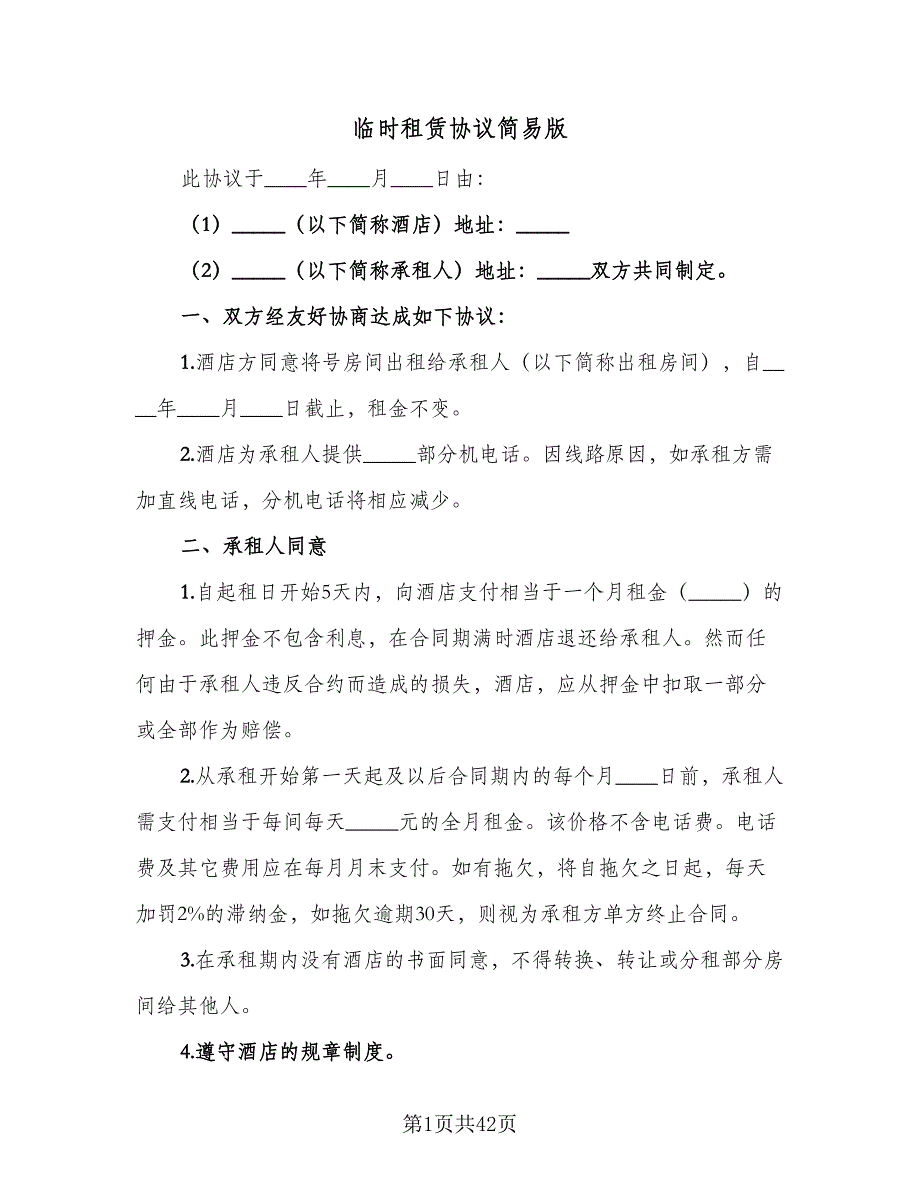 临时租赁协议简易版
此协议于____年____月____日由：
（1）_____（以下简称酒店）地址：_____
（2）_____（以下简称承租人）地址：_____双方共同制定。
一、双方经友好协商达成如下协议：
1.酒店方同意将号房间出租给承租人（以下简称出租房间），自__
__年____月____日截止，租金不变。
2.酒店为承租人提供_____部分机电话。因线路原因，如承租方需
加直线电话，分机电话将相应减少。
二、承租人同意
1.自起租日开始5天内，向酒店支付相当于一个月租金（_____）的
押金。此押金不包含利息，在合同期满时酒店退还给承租人。然而任
何由于承租人违反合约而造成的损失，酒店，应从押金中扣取一部分
或全部作为赔偿。
2.从承租开始第一天起及以后合同期内的每个月____日前，承租人
需支付相当于每间每天_____元的全月租金。该价格不含电话费。电话
费及其它费用应在每月月末支付。如有拖欠，将自拖欠之日起，每天
加罚2%的滞纳金，如拖欠逾期30天，则视为承租方单方终止合同。
3.在承租期内没有酒店的书面同意，不得转换、转让或分租部分房
间给其他人。
4.遵守酒店的规章制度。
第1页共42页